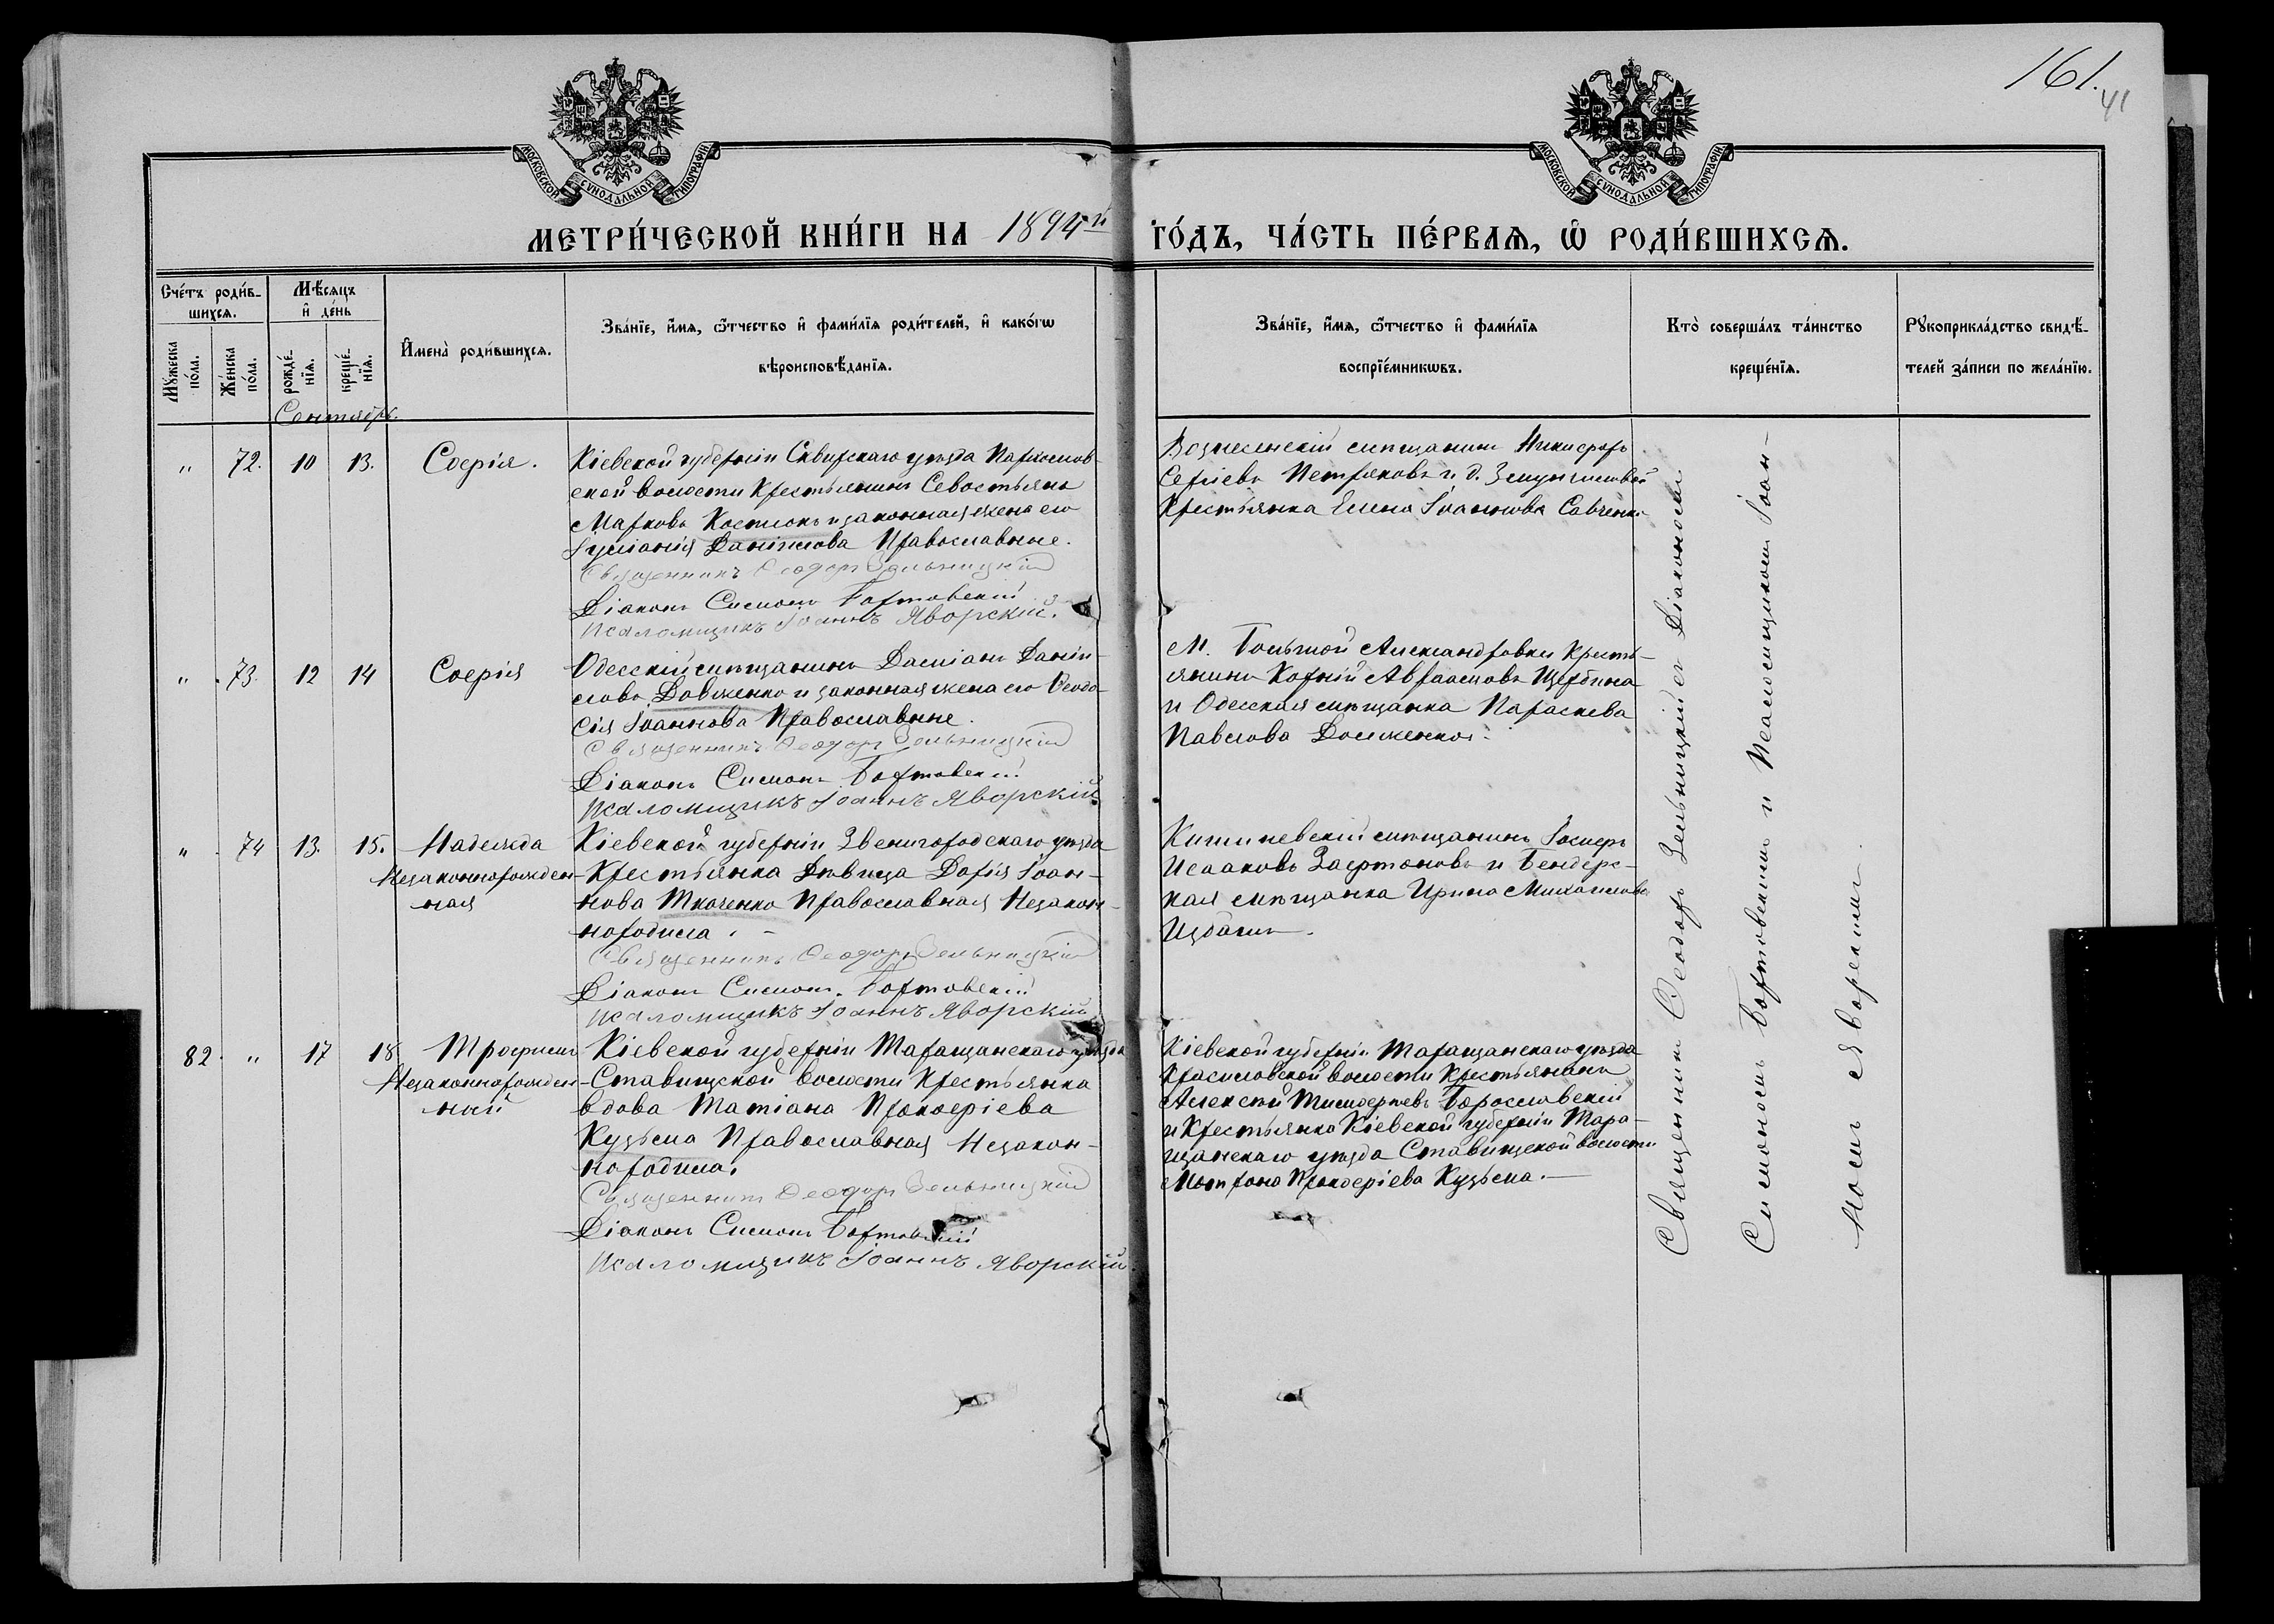 161.
41
МОСКОВСКОЙ СѴНОДАЛЬНОЙ ТИПОГРАФІИ
МОСКОВСКОЙ СѴНОДАЛЬНОЙ ТИПОГРАФІИ
МЕТРИ́ЧЕСКОЙ КНИ́ГИ НА 1894й ГО́ДЪ, ЧА́СТЬ ПЕ́РВАѦ, Ѽ РОДИ́ВШИХСѦ.
Сче́тъ роди́в-
шихсѧ.
Мꙋ́жеска по́ла.
Же́нска по́ла.
Мѣ́сѧцъ
и҆ де́нь
рожде́-
нїѧ.
креще́-
нїѧ.
И҆мена̀ роди́вшихсѧ.
Зва́нїе, и҆́мѧ, ѻ҆́тчество и҆ фами́лїѧ роди́телей, и҆ како́гѡ
вѣроисповѣ́данїѧ.
Зва́нїе, и҆́мѧ, ѻ҆́тчество и҆ фами́лїѧ
воспрїе́мникѡвъ.
Кто̀ соверша́лъ та́инство
креще́нїѧ.
Рꙋкоприкла́дство свидѣ́-
телей за́писи по жела́нїю.
Сентябрь.
" 72. 10 13. Софія.
Кіевской губерніи Сквирскаго уѣзда Пархомов-
ской волости крестьянинъ Севостьянъ
Марковъ Костюкъ и законная жена его
Іуліанія Даніилова Православные.
Священникъ Ѳеодоръ Зельницкій
Діаконъ Симонъ Бортовскій
Псаломщикъ Іоаннъ Яворскій.
Вознесенскій мѣщанинъ Никифоръ
Сергіевъ Петряковъ и д.
Крестьянка Елена Іоаннова Савченко
" 73. 12 14 Софія
Одесскій мѣщанинъ Даміанъ Даніи-
ловъ Довженко и законная жена его Ѳеодо-
сія Іоаннова Православные.
Священникъ Ѳеодоръ Зельницкій
Діаконъ Симонъ Бортовскій
Псаломщикъ Іоаннъ Яворскій
М. Большой Александровки Кресть-
янинъ Корній Авраамовъ Щербина
и Одесская мѣщанка Параскева
Павлова Долженкова.
" 74 13. 15. Надежда
Незаконнорожден-
ная
Кіевской губерніи Звенигородскаго уѣзда
Крестьянка Дѣвица Дарія Іоан-
нова Ткаченко Православная Незакон-
нородила.
Священникъ Ѳеодоръ Зельницкій
Діаконъ Симонъ Бортовскій
Псаломщикъ Іоаннъ Яворскій
Кишиневскій мѣщанинъ Іосифъ
Исааковъ Зафртановъ и Бендерс-
кая мѣщанка Ирина Михаилова
82. " 17 18 Трофимъ
Незаконнорожден-
ный
Кіевской губерніи Таращанскаго уѣзда
Ставищской волости Крестьянка
вдова Татіана Прокофіева
Кузьма Православная Незакон-
нородила.
Священникъ Ѳеодоръ Зельницкій
Діаконъ Симонъ Бортовскій
Псаломщикъ Іоаннъ Яворскій
Кіевской губерніи Таращанскаго уѣзда
Красиловской волости Крестьянинъ
Алексѣй Тимофеевъ Борославскій
и Крестьянка Кіевской губерніи Тара-
щанскаго уѣзда Ставищской волости
Матрона Прокофіева Кузьма.
Священникъ Ѳеодоръ Зельницкій съ Діакономъ
Симономъ Бортовскимъ и Псаломщикомъ Іоан-
номъ Яворскимъ.